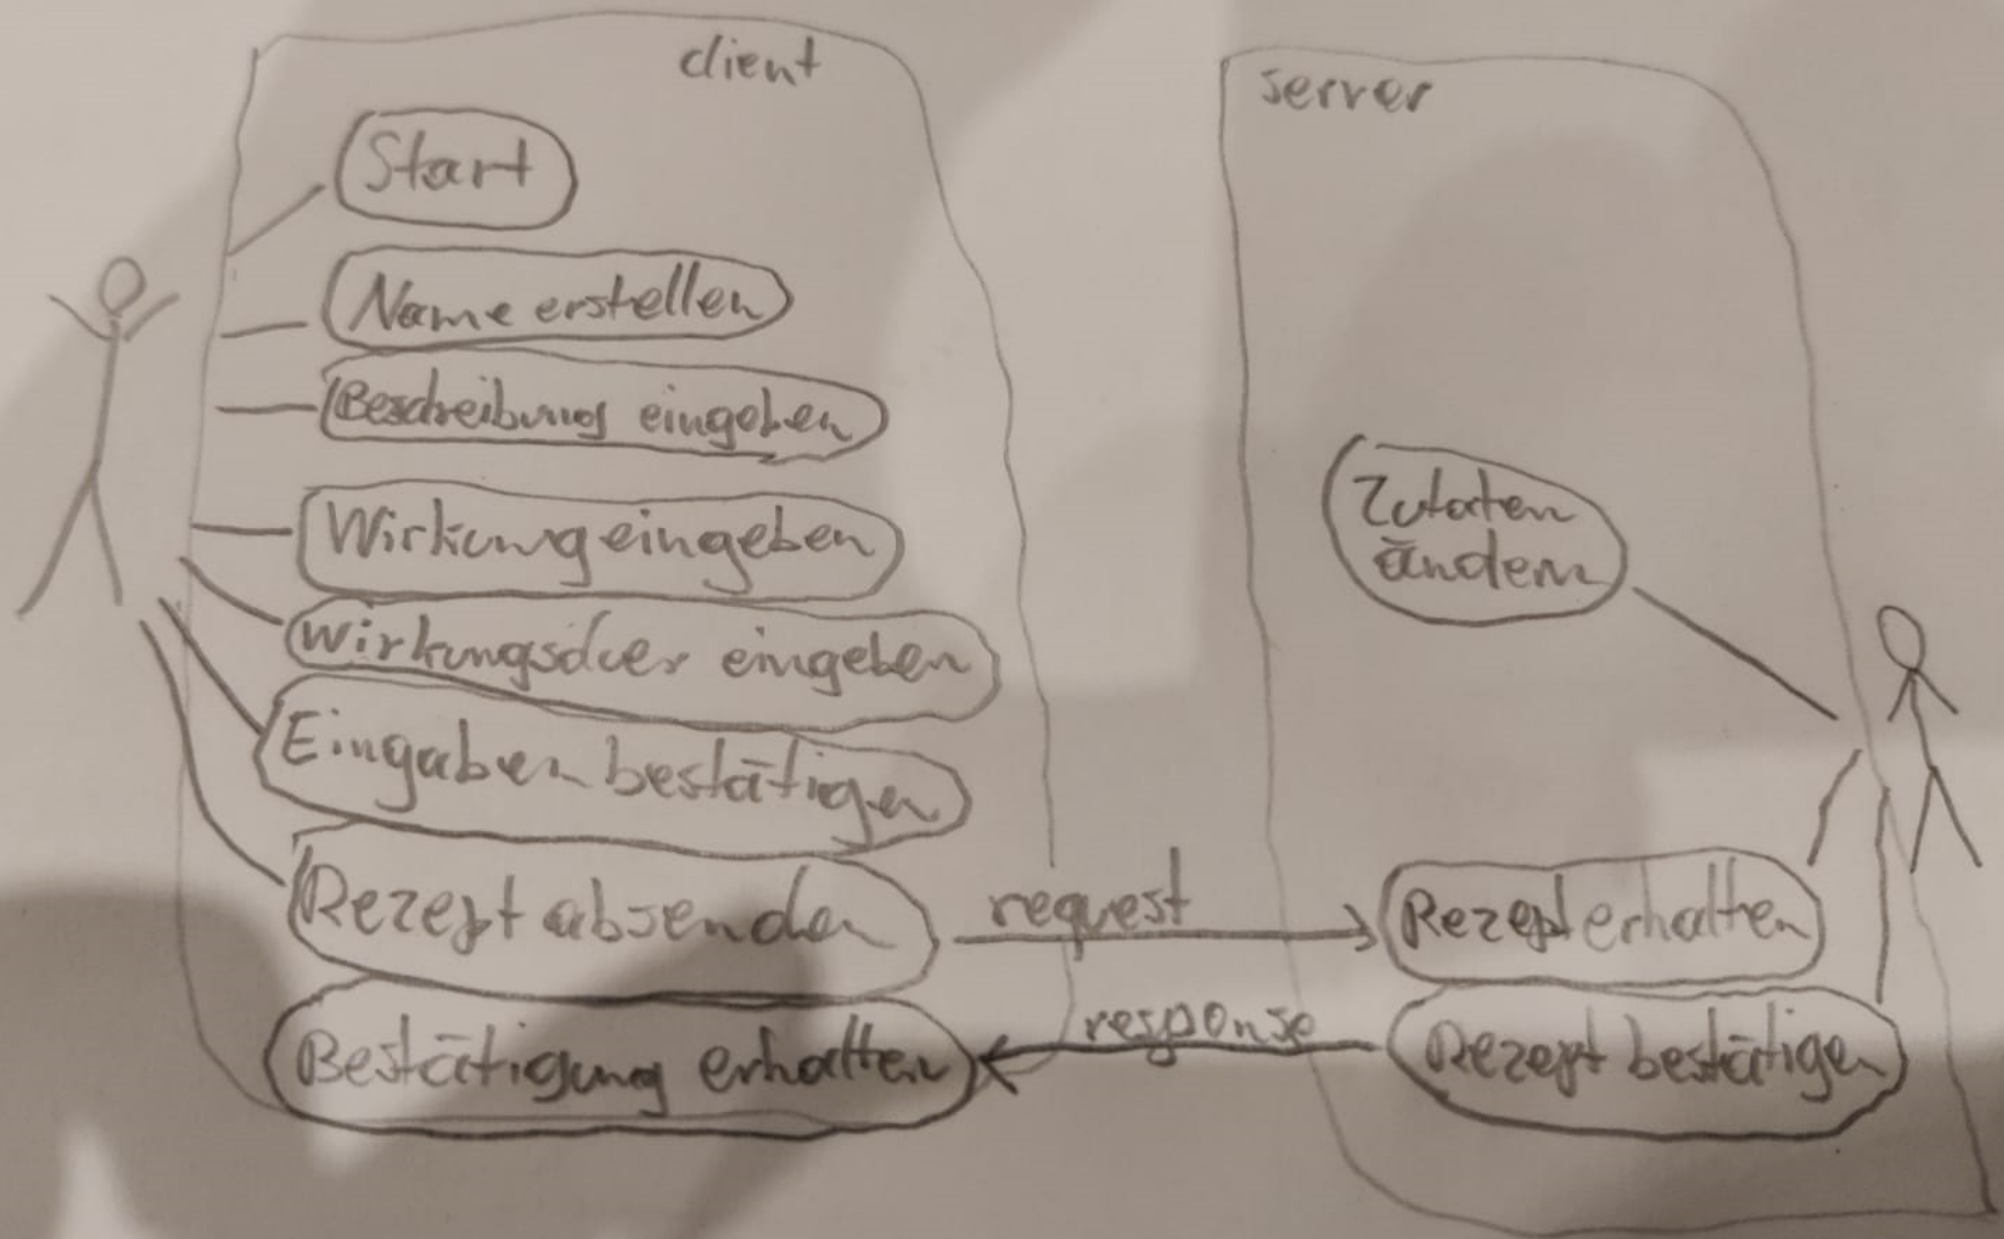 client
Start
Name erstellen
Beschreibung eingeben
Wirkung eingeben
eingeben
Eingaben bestätigen
Rezept absenden
Bestätigung erhalten
request
response
server
Zutaten
ändern
Rezept erhalten
Rezept bestätigen